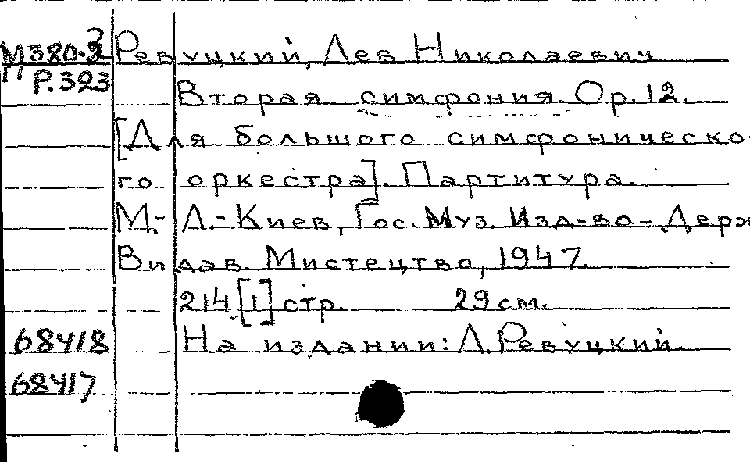 М380.3 Ревуцкий, Лев Николаевич
Р.323
Вторая симфония. Ор. 12.
[Для большого симфоническо-
го оркестра]. Партитура.
М.-Л.-Киев, Гос. Муз. Изд-во-Держ.
Видав. Мистецтво, 1947.
214 [1] стр. 29 см.
68418 На издании: Л. Ревуцкий.
68417